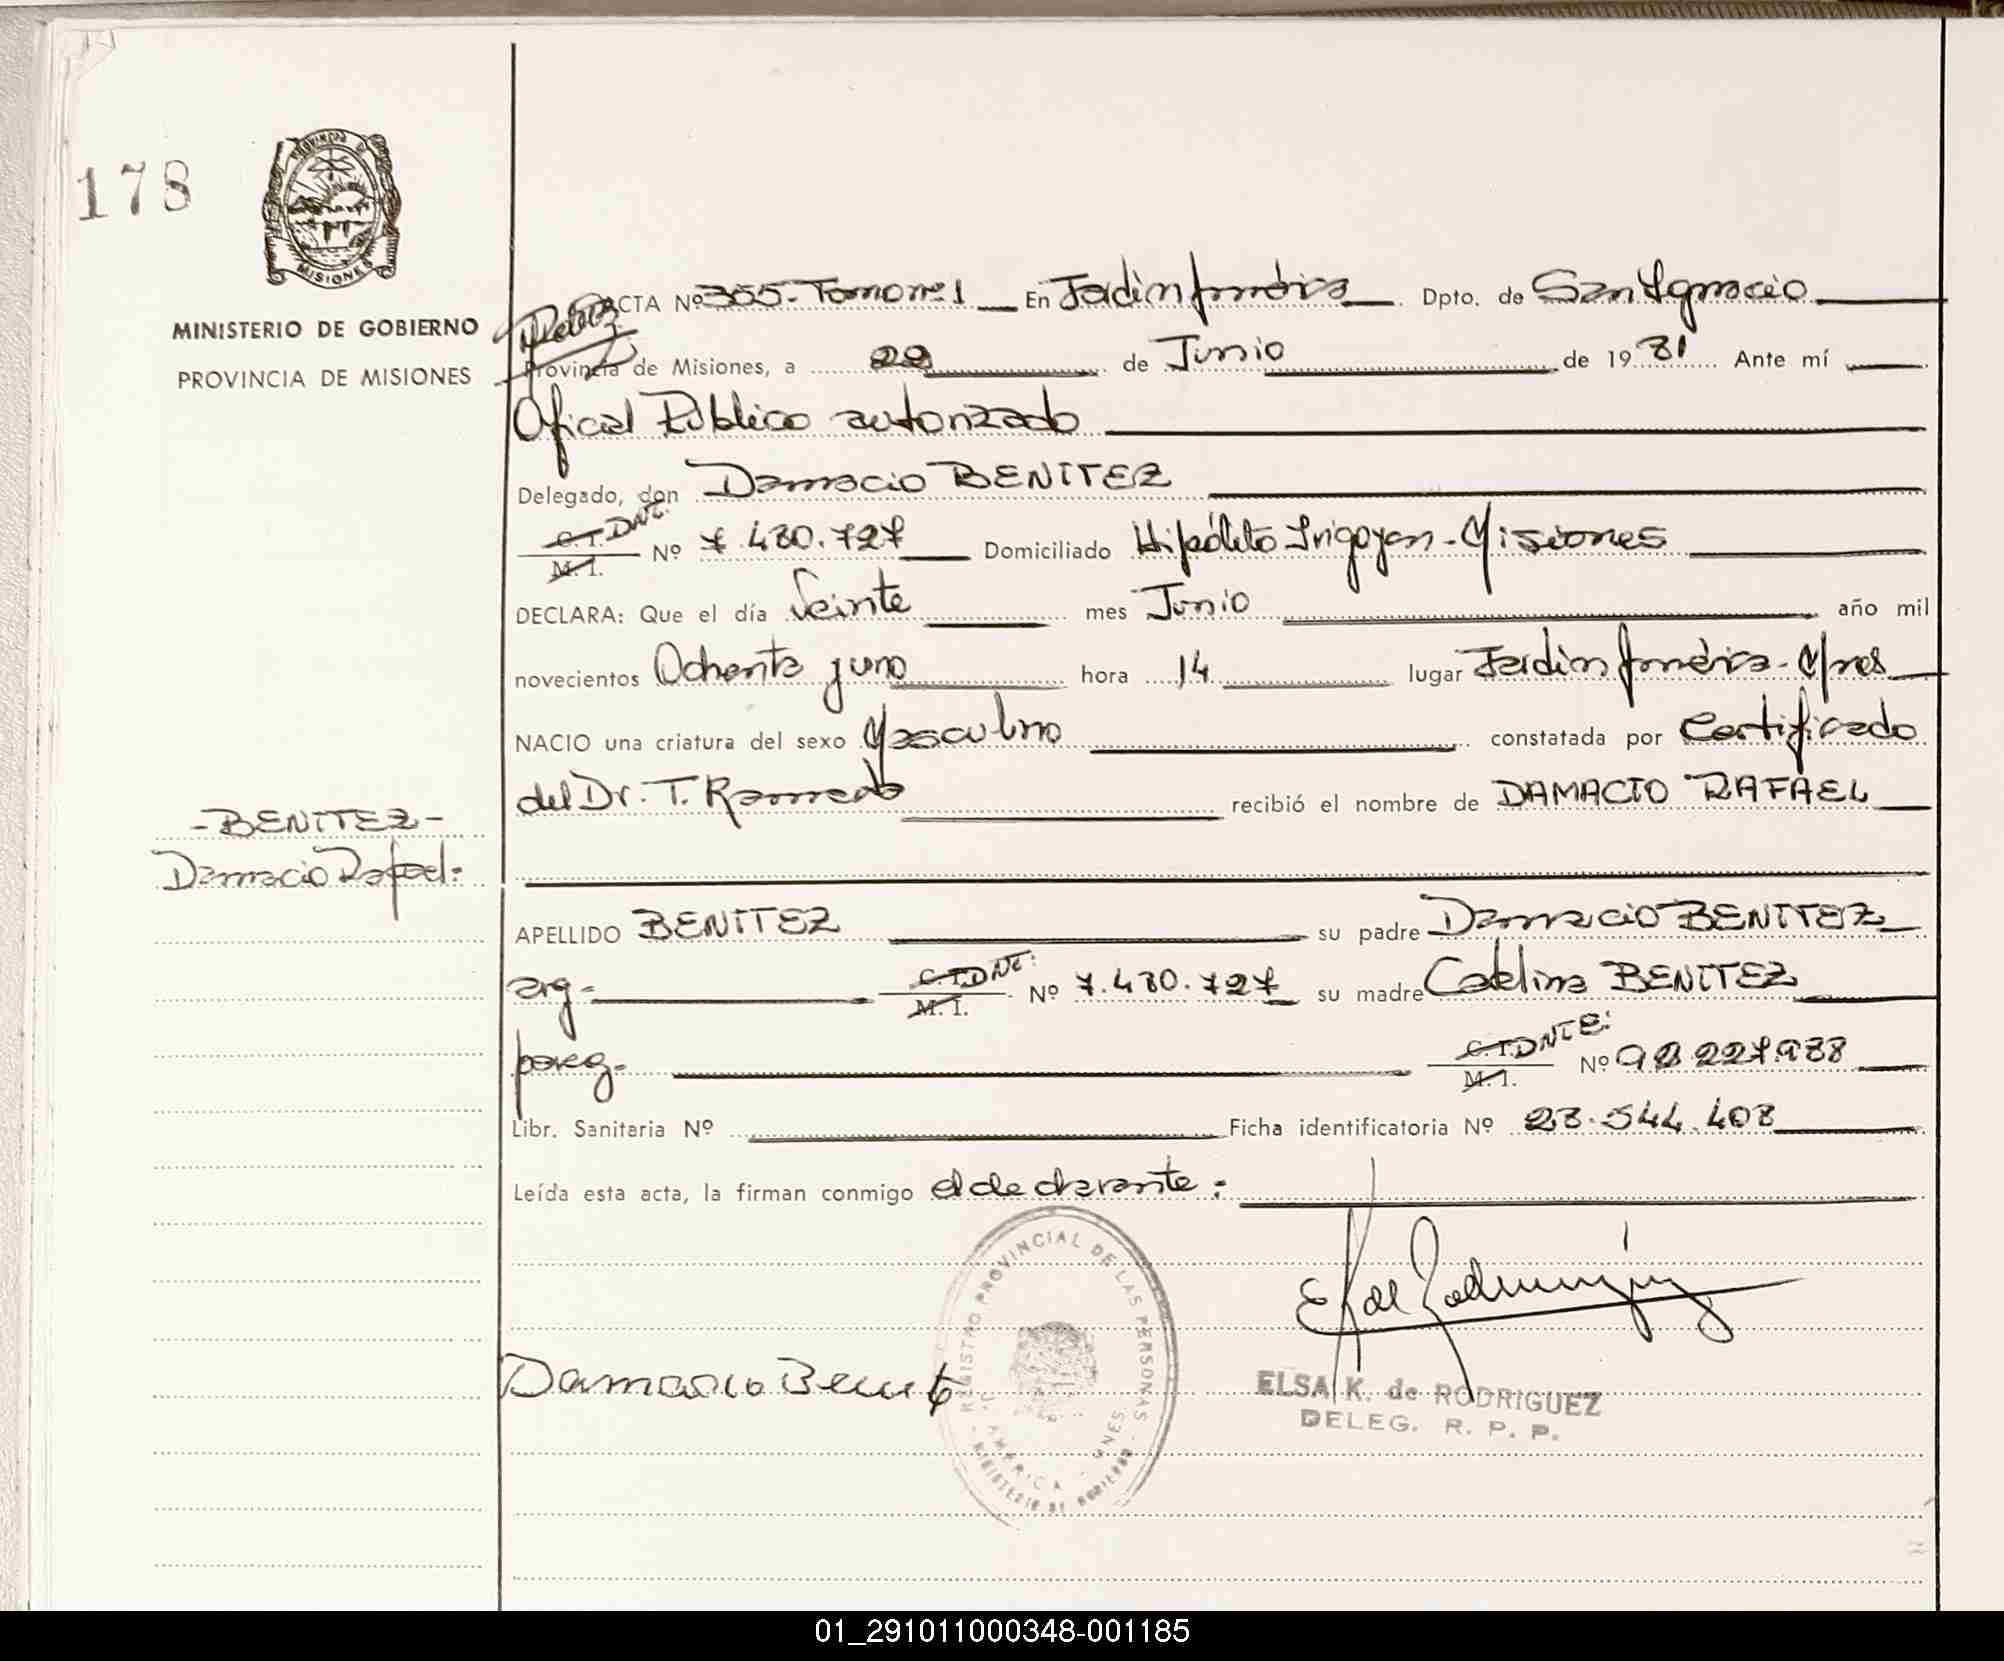 178
PROVINCIA DE
MISIONES
MINISTERIO DE GOBIERNO
PROVINCIA DE MISIONES
ACTA Nº 365- Tomo nº 1 En Jardin América Dpto. de San Ignacio
Provincia de Misiones, a 22 de Junio de 1981 Ante mí
Oficial Público autorizado
Delegado, don Damacio BENITEZ
C.I. DNI. M.I. Nº 7.480.727 Domiciliado Hipólito Irigoyen - Misiones
DECLARA: Que el día Veinte mes Junio año mil
novecientos Ochenta y uno hora 14 lugar Jardin América - Mnes
NACIO una criatura del sexo Masculino constatada por Certificado
del Dr. T. Romero recibió el nombre de DAMACIO RAFAEL
-BENITEZ-
Damacio Rafael:
APELLIDO BENITEZ su padre Damacio BENITEZ
arg- C.I. DNI: M.I. Nº 7.480.727 su madre Catalina BENITEZ
parag- C.I. DNIE: M.I. Nº 92.227.988
Libr. Sanitaria Nº Ficha identificatoria Nº 28.544.408
Leída esta acta, la firman conmigo el declarante:
REGISTRO PROVINCIAL DE LAS PERSONAS
AMÉRICA
MINISTERIO DE GOBIERNO
Damacio Benitez
ELSA K. de RODRIGUEZ
DELEG. R. P. P.
01_291011000348-001185